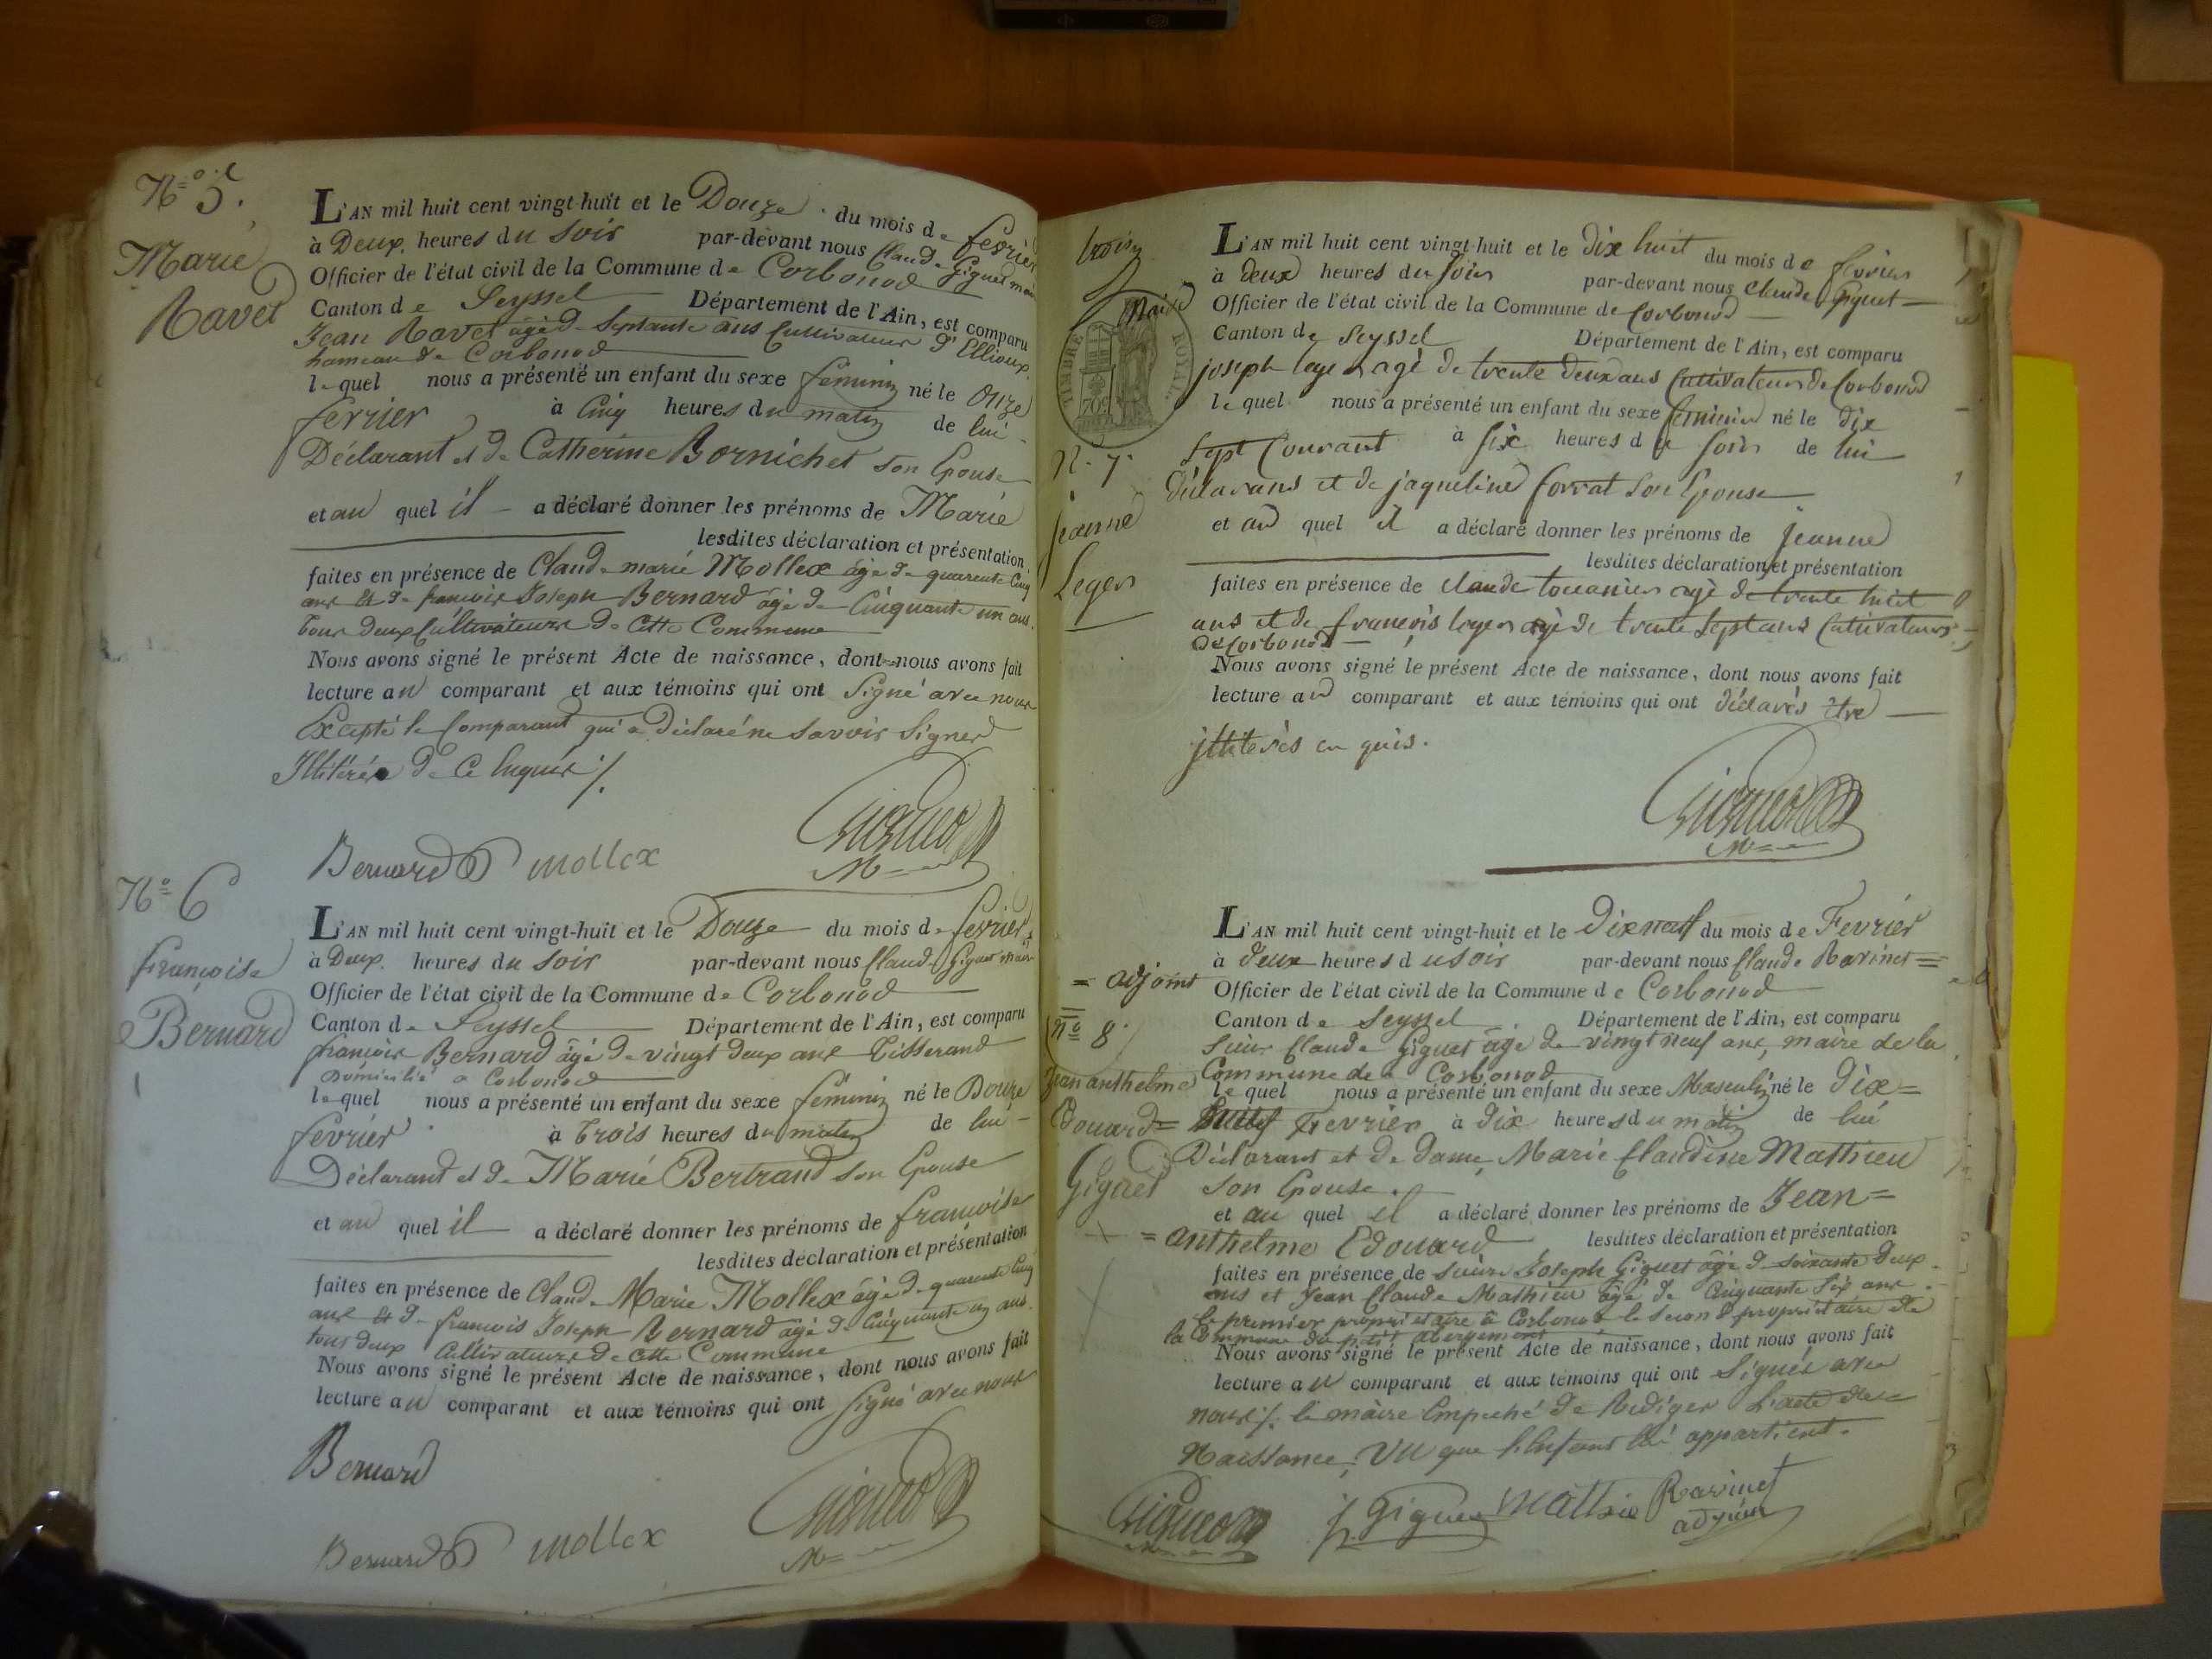 N.º 5.
Marie
Ravet
L'AN mil huit cent vingt-huit et le Douze du mois de fevrier
à Deux heures du soir par-devant nous Claude Giguet maire
Officier de l'état civil de la Commune de Corbonod
Canton de Seyssel Département de l'Ain, est comparu
Jean Ravet âgé de Septante ans Cultivateur d'Ellioux
hameau de Corbonod
lequel nous a présenté un enfant du sexe féminin né le Onze
fevrier à Cinq heures du matin de lui
Déclarant et de Catherine Bornichet son Epouse
et au quel il a déclaré donner les prénoms de Marie
lesdites déclaration et présentation
faites en présence de Claude marie Mollex âgé de quarente Cinq
ans et de francois Joseph Bernard âgé de Cinquante un ans
tous deux Cultivateurs de Cette Commune
Nous avons signé le présent Acte de naissance, dont nous avons fait
lecture au comparant et aux témoins qui ont Signé avec nous
Excepté le Comparant qui a Déclaré ne Savoir Signer
Illitéré de Ce Enquis /.
Bernard Mollex Giguet
M
Nº 6
françoise
Bernard
L'AN mil huit cent vingt-huit et le Douze du mois de fevrier
à Deux heures du soir par-devant nous Claude Giguet maire
Officier de l'état civil de la Commune de Corbonod
Canton de Seyssel Département de l'Ain, est comparu
françois Bernard âgé de vingt deux ans Tisserand
Domicilié a Corbonod
lequel nous a présenté un enfant du sexe féminin né le Douze
fevrier à Trois heures du matin de lui
Déclarant et de Marie Bertrand son Epouse
et au quel il a déclaré donner les prénoms de françoise
lesdites déclaration et présentation
faites en présence de Claude Marie Mollex âgé de quarente Cinq
ans et de francois Joseph Bernard âgé de Cinquante un ans
tous deux Cultivateurs de Cette Commune
Nous avons signé le présent Acte de naissance, dont nous avons fait
lecture au comparant et aux témoins qui ont Signé avec nous
Bernard
Bernard Mollex Giguet
M
troix
Maire
TIMBRE ROYAL
70c
N. 7.
jeanne
Leger
L'AN mil huit cent vingt-huit et le dix huit du mois de fevrier
à deux heures du soir par-devant nous Claude Giguet
Officier de l'état civil de la Commune de Corbonod
Canton de Seyssel Département de l'Ain, est comparu
joseph leger agé de trente deux ans Cultivateur de Corbonod
lequel nous a présenté un enfant du sexe feminin né le dix
Sept Courant à Six heures du soir de lui
déclarans et de jaqueline forrat son Epouse
et au quel il a déclaré donner les prénoms de jeanne
lesdites déclaration et présentation
faites en présence de claude touanier agé de trente huit
ans et de francois leger agé de trente Sept ans Cultivateurs
de Corbonod
Nous avons signé le présent Acte de naissance, dont nous avons fait
lecture au comparant et aux témoins qui ont déclarés être
illiterés en quis.
Giguet
M
= adjoint
nº 8.
Jean anthelme
Edouard =
Giguet
L'AN mil huit cent vingt-huit et le Dixneuf du mois de Fevrier
à deux heures du soir par-devant nous Claude Ravinet =
Officier de l'état civil de la Commune de Corbonod
Canton de Seyssel Département de l'Ain, est comparu
Sieur Claude Giguet âgé de vingt neuf ans, maire de la
Commune de Corbonod
lequel nous a présenté un enfant du sexe Masculin né le Dix=
huit Fevrier à dix heures du matin de lui
Déclarant et de dame Marie Claudine Mathieu
son Epouse.
et au quel il a déclaré donner les prénoms de Jean=
= anthelme Edouard lesdites déclaration et présentation
faites en présence de Sieur Joseph Giguet âgé de soixante deux
ans et Jean Claude Mathieu âgé de Cinquante Six ans
le premier propriétaire à Corbonod le Second propriétaire de
la Commune du petit abergement
Nous avons signé le présent Acte de naissance, dont nous avons fait
lecture au comparant et aux témoins qui ont Signés avec
nous /. le maire Empeché de Rédiger l'acte de=
Naissance, Vu que l'Enfant lui appartient.
Giguet J. Giguet Mathieu Ravinet
adjoint